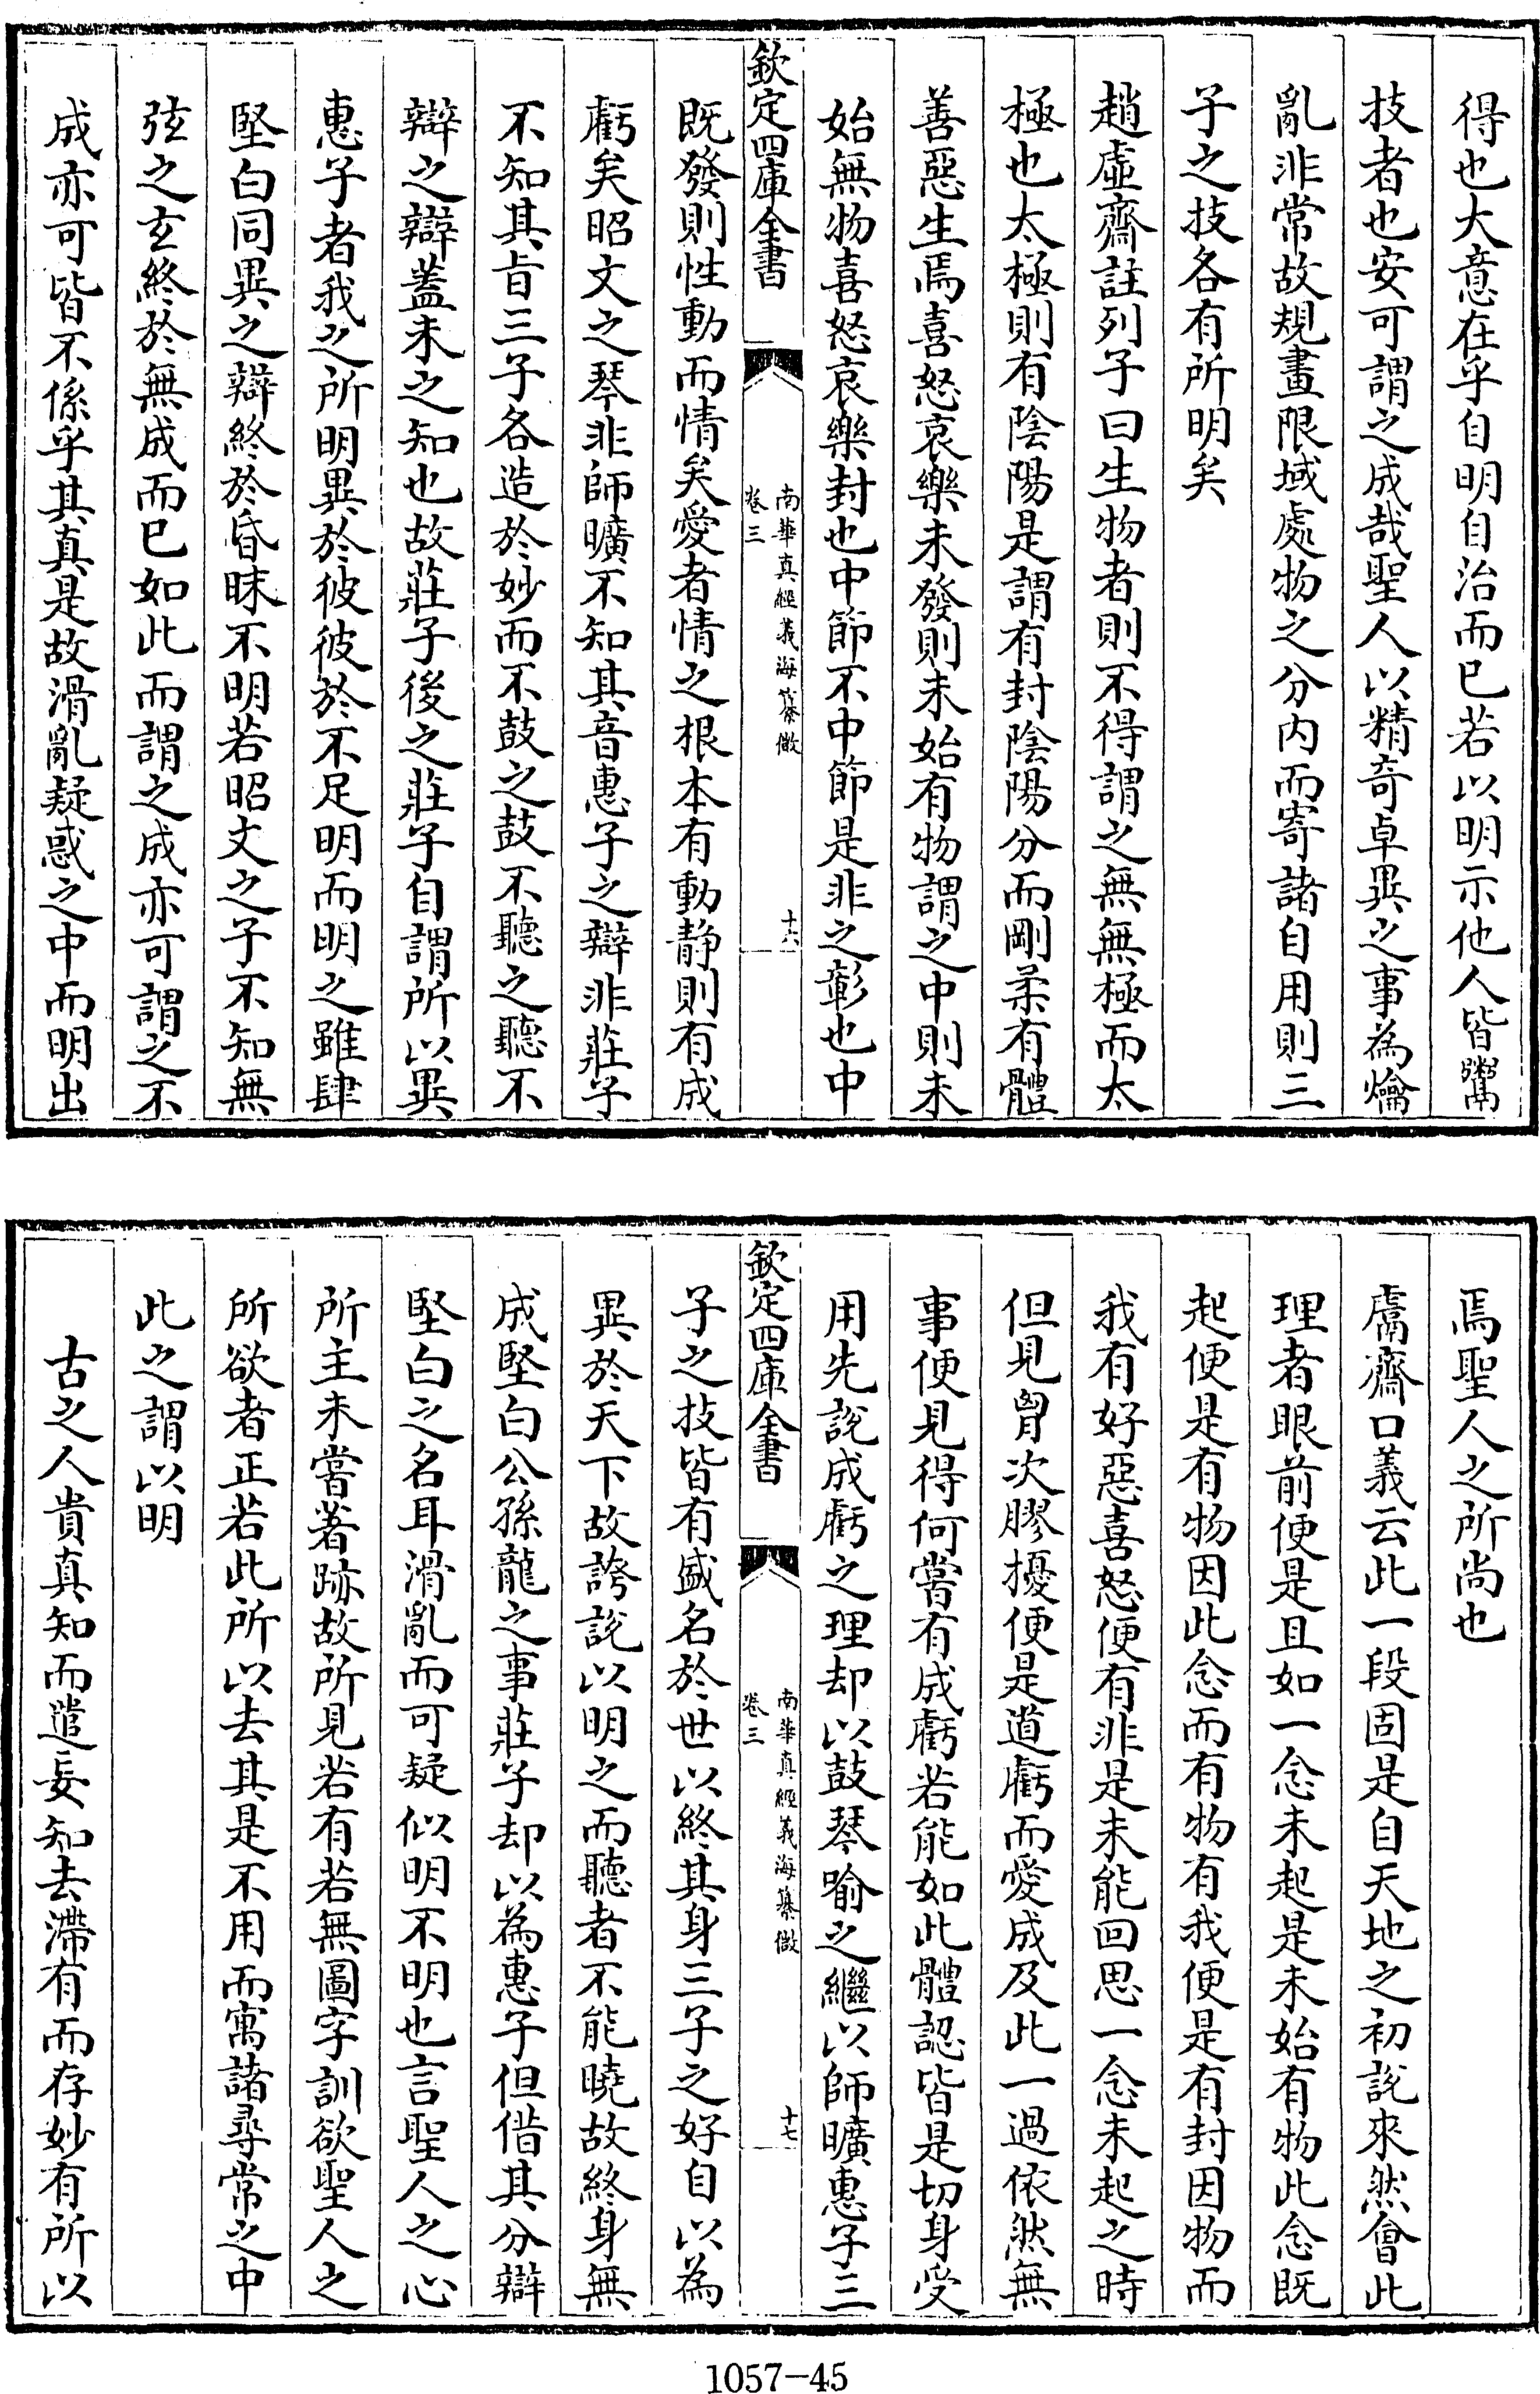 得也大意在乎自明自治而已若以明示他人皆鬻
技者也安可謂之成哉聖人以精奇卓異之事為爚
亂非常故規畫限域處物之分内而寄諸自用則三
子之技各有所明矣
趙虛齋註列子曰生物者則不得謂之無無極而太
極也太極則有陰陽是謂有封陰陽分而剛柔有體
善惡生焉喜怒哀樂未發則未始有物謂之中則未
始無物喜怒哀樂封也中節不中節是非之彰也中
欽定四庫全書
南華真經義海纂微
卷三
十六
既發則性動而情矣愛者情之根本有動静則有成
虧矣昭文之琴非師曠不知其音惠子之辯非莊子
不知其旨三子各造於妙而不鼓之鼓不聽之聽不
辯之辯蓋未之知也故莊子後之莊子自謂所以異
惠子者我之所明異於彼彼於不足明而明之雖肆
堅白同異之辯終於昏昧不明若昭文之子不知無
弦之玄終於無成而已如此而謂之成亦可謂之不
成亦可皆不係乎其真是故滑亂疑惑之中而明出
焉聖人之所尚也
鬳齋口義云此一段固是自天地之初說來然會此
理者眼前便是且如一念未起是未始有物此念既
起便是有物因此念而有物有我便是有封因物而
我有好惡喜怒便有非是未能回思一念未起之時
但見胷次膠擾便是道虧而愛成及此一過依然無
事便見得何嘗有成虧若能如此體認皆是切身受
用先說成虧之理却以鼓琴喻之繼以師曠惠子三
欽定四庫全書
南華真經義海纂微
卷三
十七
子之技皆有盛名於世以終其身三子之好自以為
異於天下故誇說以明之而聽者不能曉故終身無
成堅白公孫龍之事莊子却以為惠子但借其分辯
堅白之名耳滑亂而可疑似明不明也言聖人之心
所主未嘗著跡故所見若有若無圖字訓欲聖人之
所欲者正若此所以去其是不用而寓諸尋常之中
此之謂以明
古之人貴真知而遣妄知去滯有而存妙有所以
1057-45